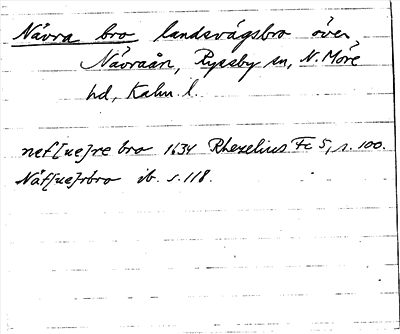 Nävra bro landsvägsbro över
Nävraån, Ryssby sn, N. Möre
hd, Kalm. l.
nef[ue]re bro 1634 Rhezelius Fc 5, s. 100.
Näf[ue]rbro ib. s. 118.